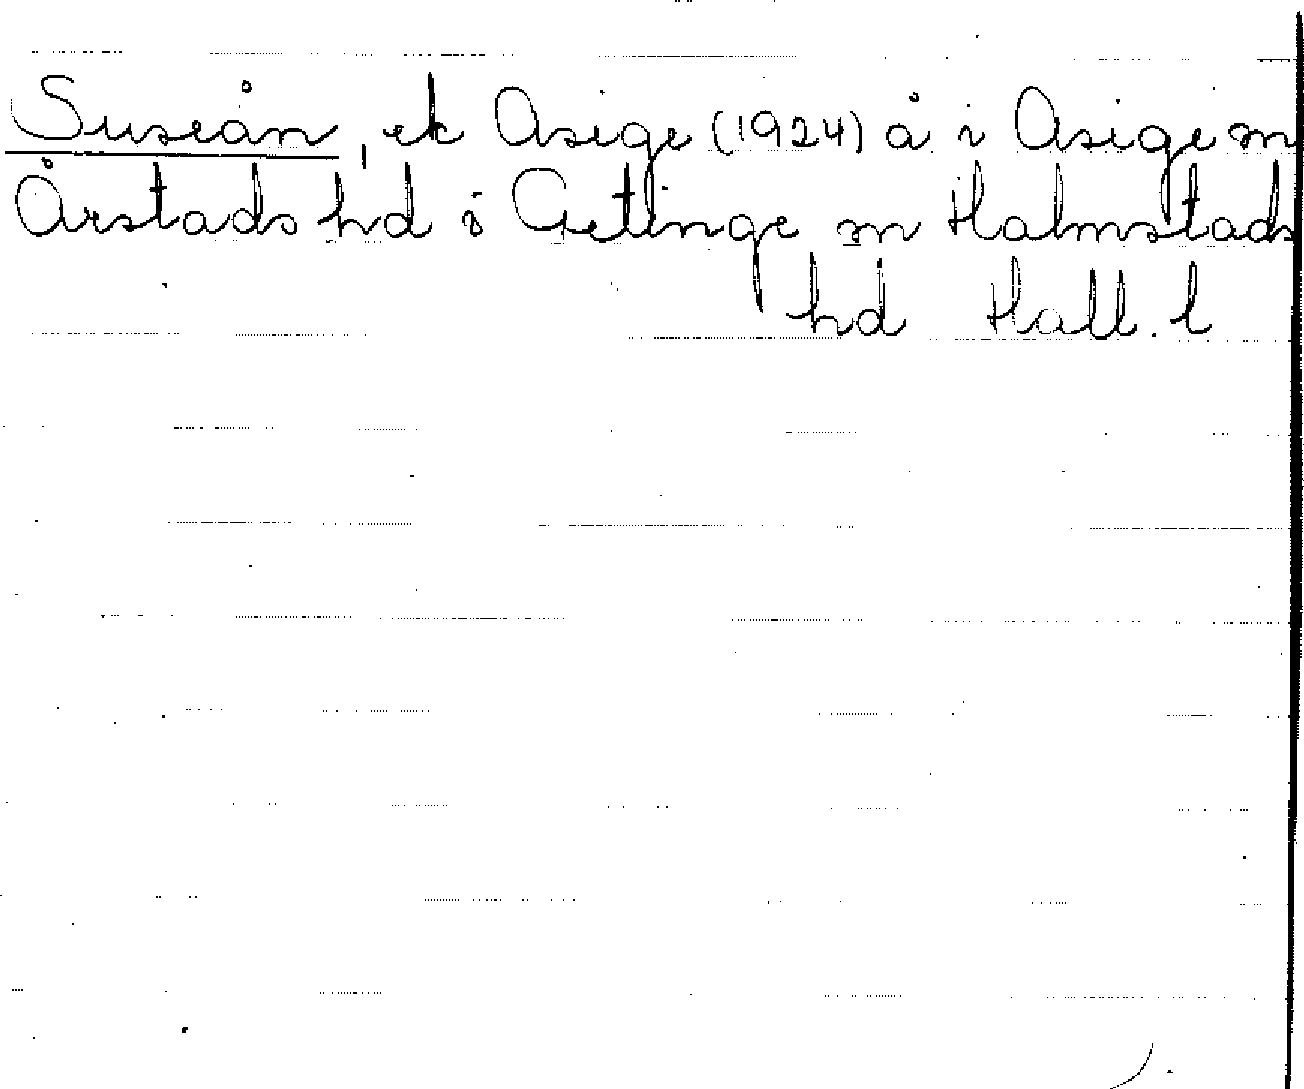 Suseån, ek Asige (1924) å i Asige sn
Årstads hd o Getinge sn Halmstads
hd Hall. l